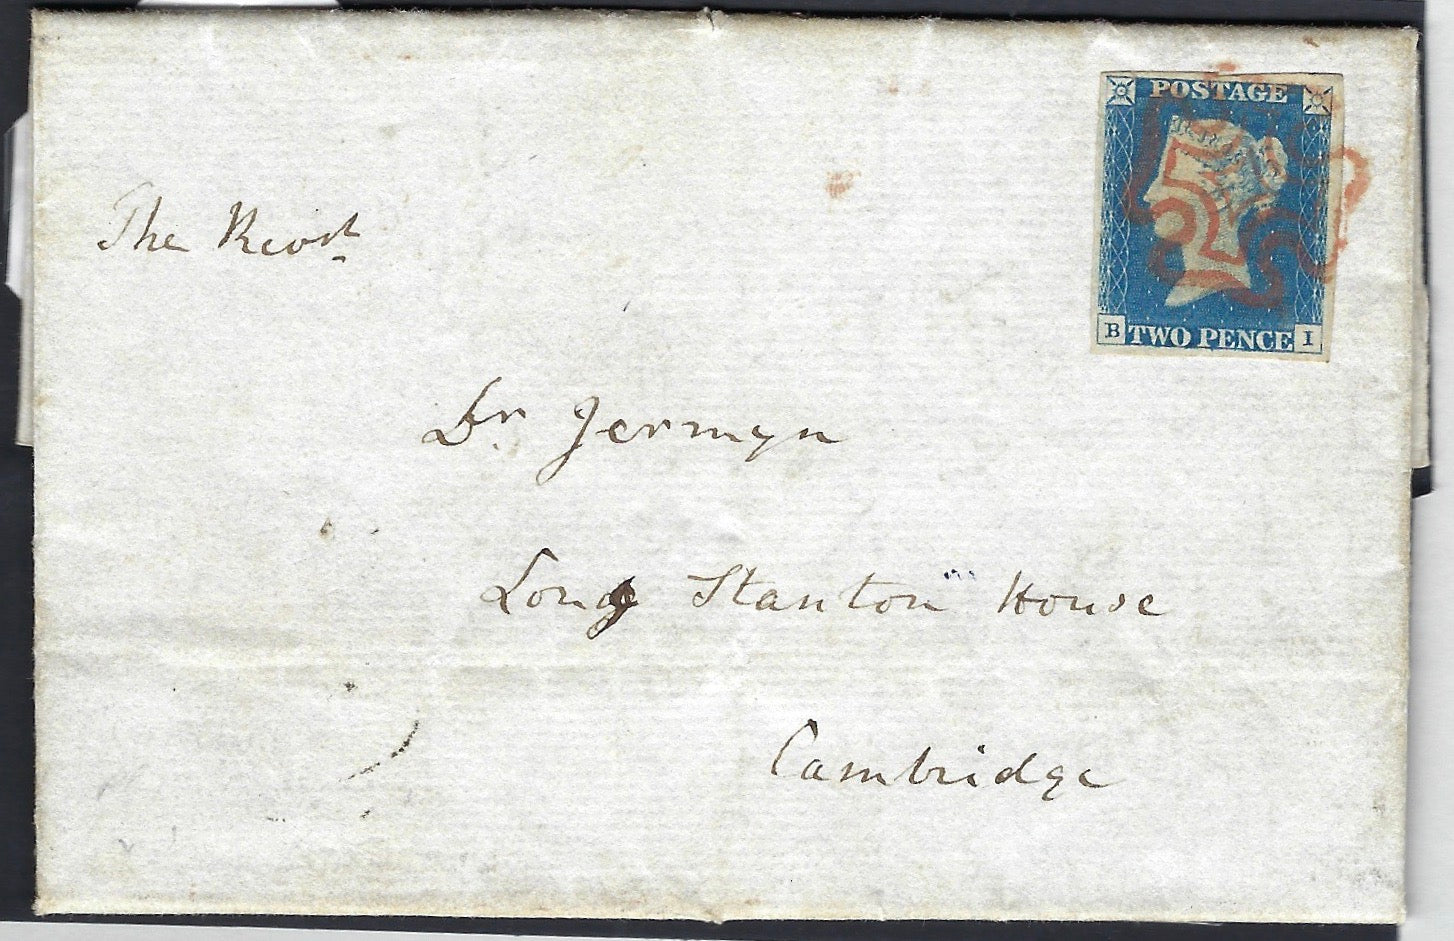 POSTAGE
B TWO PENCE I
The Revd
Dr. Jermyn
Long Stanton House
Cambridge